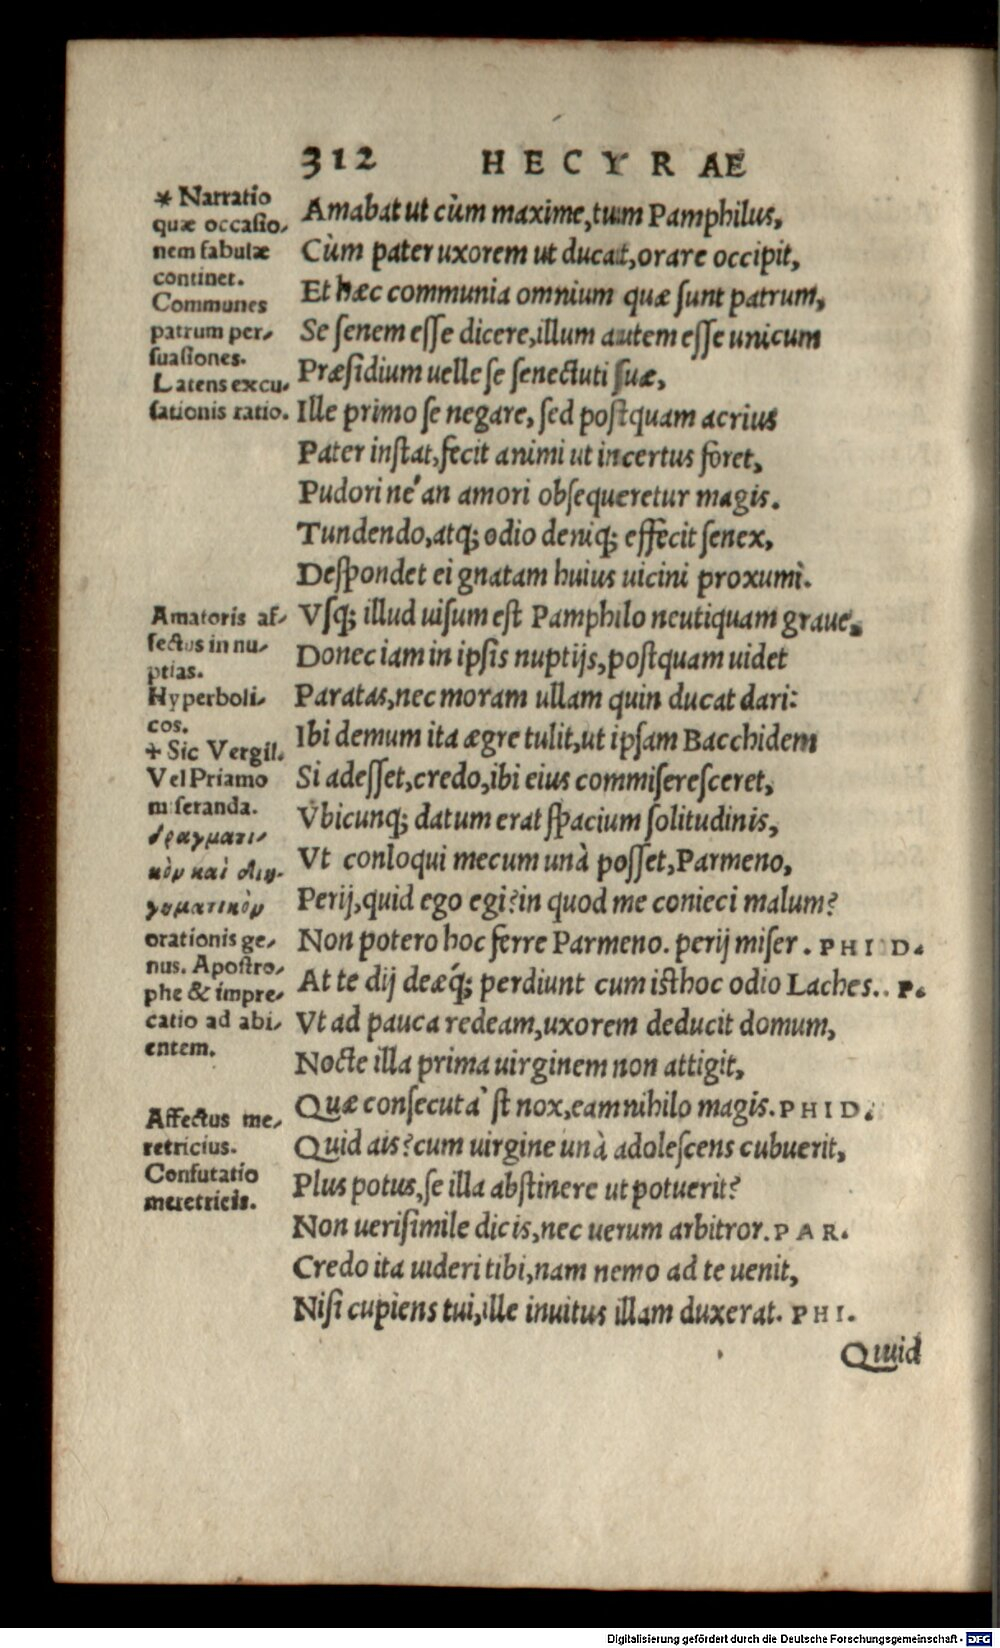 312 HECYRAE
* Narratio
quæ occasio-
nem fabulæ
continet.
Communes
patrum per-
suasiones.
Latens excu-
sationis ratio.
Amabat ut cùm maxime, tum Pamphilus,
Cùm pater uxorem ut ducat, orare occipit,
Et hæc communia omnium quæ sunt patrum,
Se senem esse dicere, illum autem esse unicum
Præsidium uelle se senectuti suæ,
Ille primo se negare, sed postquam acrius
Pater instat, fecit animi ut incertus foret,
Pudori ne'an amori obsequeretur magis.
Tundendo, atq; odio deniq; effecit senex,
Despondet ei gnatam huius uicini proxumi.
Amatoris af-
fectus in nu-
ptias.
Hyperboli-
cos.
+ Sic Vergil.
Vel Priamo
miseranda.
δραγματι-
κὸν καὶ διη-
γηματικὸν
orationis ge-
nus. Apostro-
phe & impre-
catio ad abi-
entem.
Vsq; illud uisum est Pamphilo neutiquam graue,
Donec iam in ipsis nuptijs, postquam uidet
Paratas, nec moram ullam quin ducat dari:
Ibi demum ita ægre tulit, ut ipsam Bacchidem
Si adesset, credo, ibi eius commiseresceret,
Vbicunq; datum erat spacium solitudinis,
Vt conloqui mecum unà posset, Parmeno,
Perij, quid ego egi? in quod me conieci malum?
Non potero hoc ferre Parmeno. perij miser. PHID.
At te dij deæq́; perdiunt cum isthoc odio Laches.. P.
Vt ad pauca redeam, uxorem deducit domum,
Nocte illa prima uirginem non attigit,
Affectus me-
retricius.
Confutatio
meretricis.
Quæ consecuta' st nox, eam nihilo magis. PHID.
Quid ais? cum uirgine unà adolescens cubuerit,
Plus potus, se illa abstinere ut potuerit?
Non uerisimile dicis, nec uerum arbitror. PAR.
Credo ita uideri tibi, nam nemo ad te uenit,
Nisi cupiens tui, ille inuitus illam duxerat. PHI.
Quid
Digitalisierung gefördert durch die Deutsche Forschungsgemeinschaft - DFG